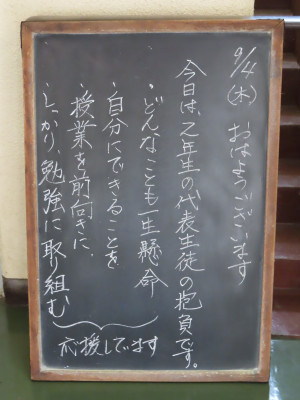 9/4(木) おはようございます
今日は、2年生の代表生徒の抱負です。
・どんなことも一生懸命
・自分にできることを
・授業を前向きに、
しっかり、勉強に取り組む
応援してます